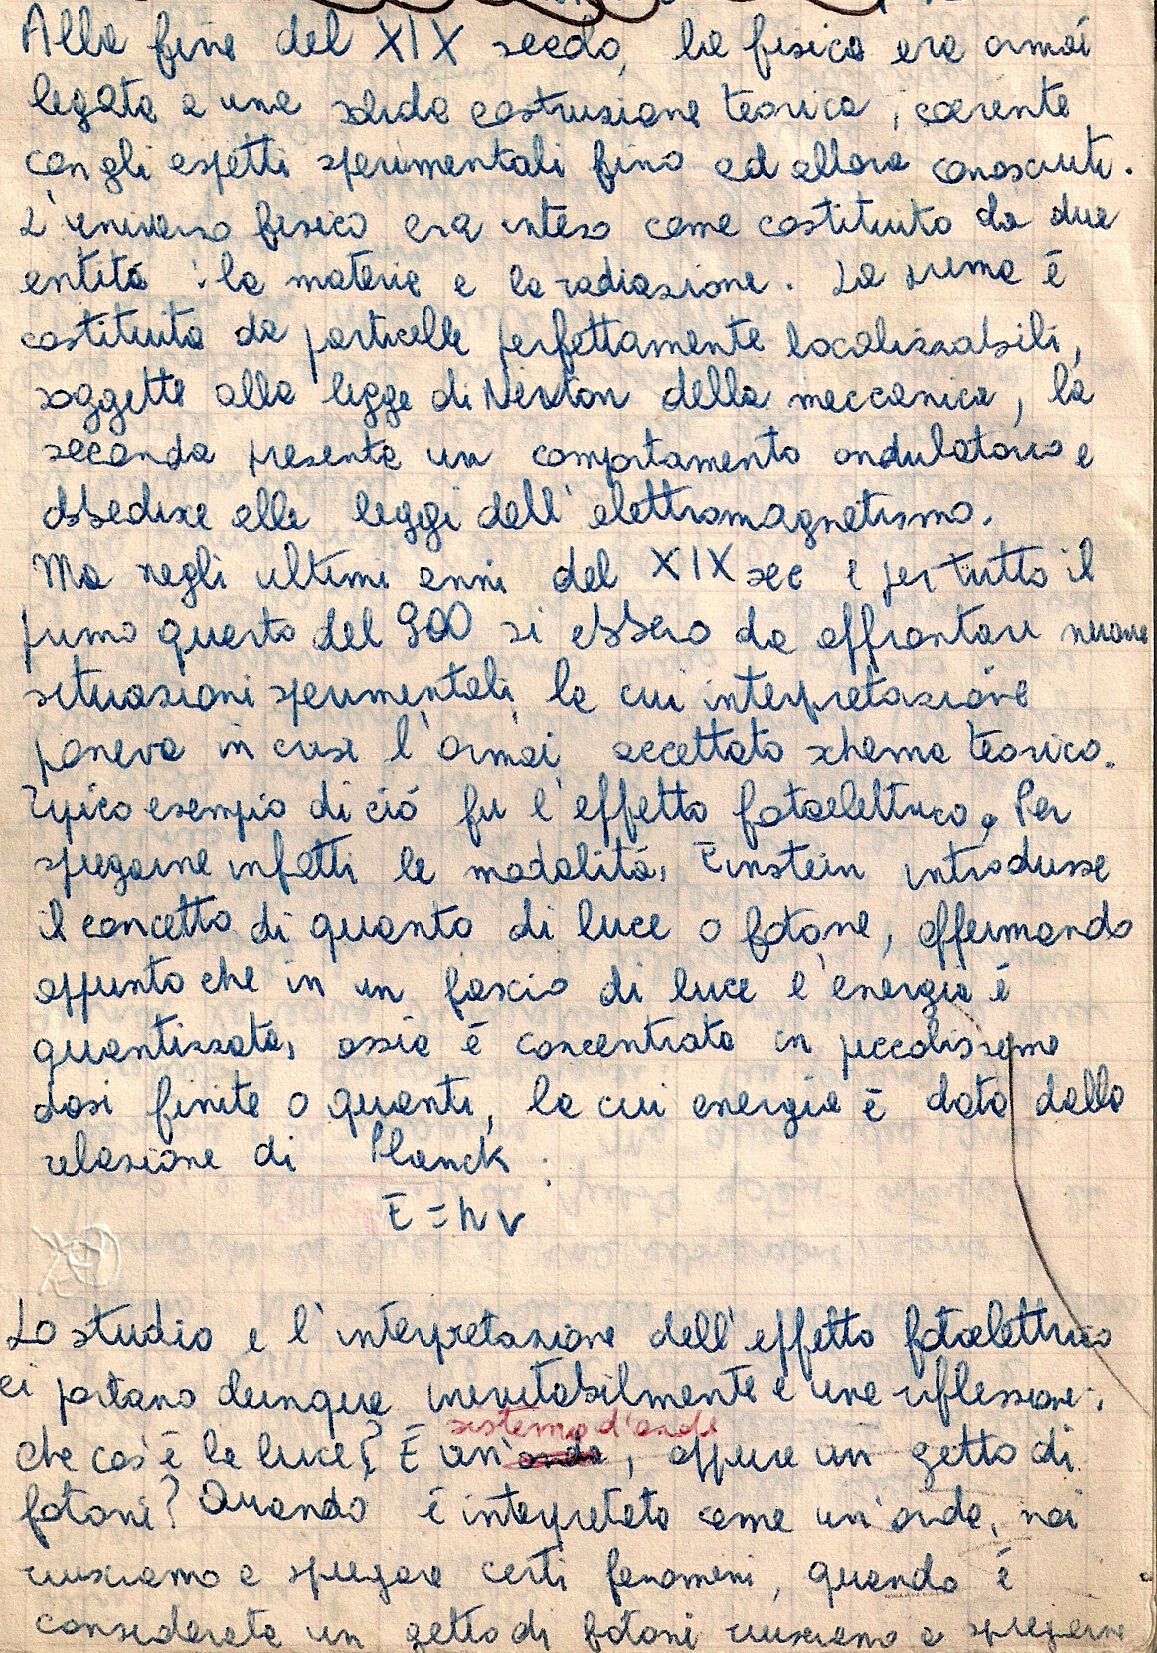 Alla fine del XIX secolo, la fisica era ormai
legata a una solida costruzione teorica, coerente
con gli aspetti sperimentali fino ad allora conosciuti.
L'universo fisico era inteso come costituito da due
entitá : la materia e la radiazione. La prima é
costituita da particelle perfettamente localizzabili,
soggette alla legge di Newton della meccanica, la
seconda presenta un comportamento ondulatorio e
obbedisce alle leggi dell'elettromagnetismo.
Ma negli ultimi anni del XIX sec e per tutto il
primo quarto del 900 si ebbero da affrontare nuove
situazioni sperimentali, la cui interpretazione
poneva in crisi l'ormai accettato schema teorico.
Tipico esempio di ció fu l'effetto fotoelettrico. Per
spiegarne infatti le modalitá, Einstein introdusse
il concetto di quanto di luce o fotone, affermando
appunto che in un fascio di luce l'energia é
quantizzata, ossia é concentrata in piccolissime
dosi finite o quanti, la cui energia é data dalla
relazione di Planck :
E = h ν
Lo studio e l'interpretazione dell'effetto fotoelettrico
ci portano dunque inevitabilmente a una riflessione:
sistema d'onde
che cos'é la luce? É un'onda, oppure un getto di
fotoni? Quando é interpretata come un'onda, noi
riusciamo a spiegare certi fenomeni, quando é
considerata un getto di fotoni riusciamo a spiegarne